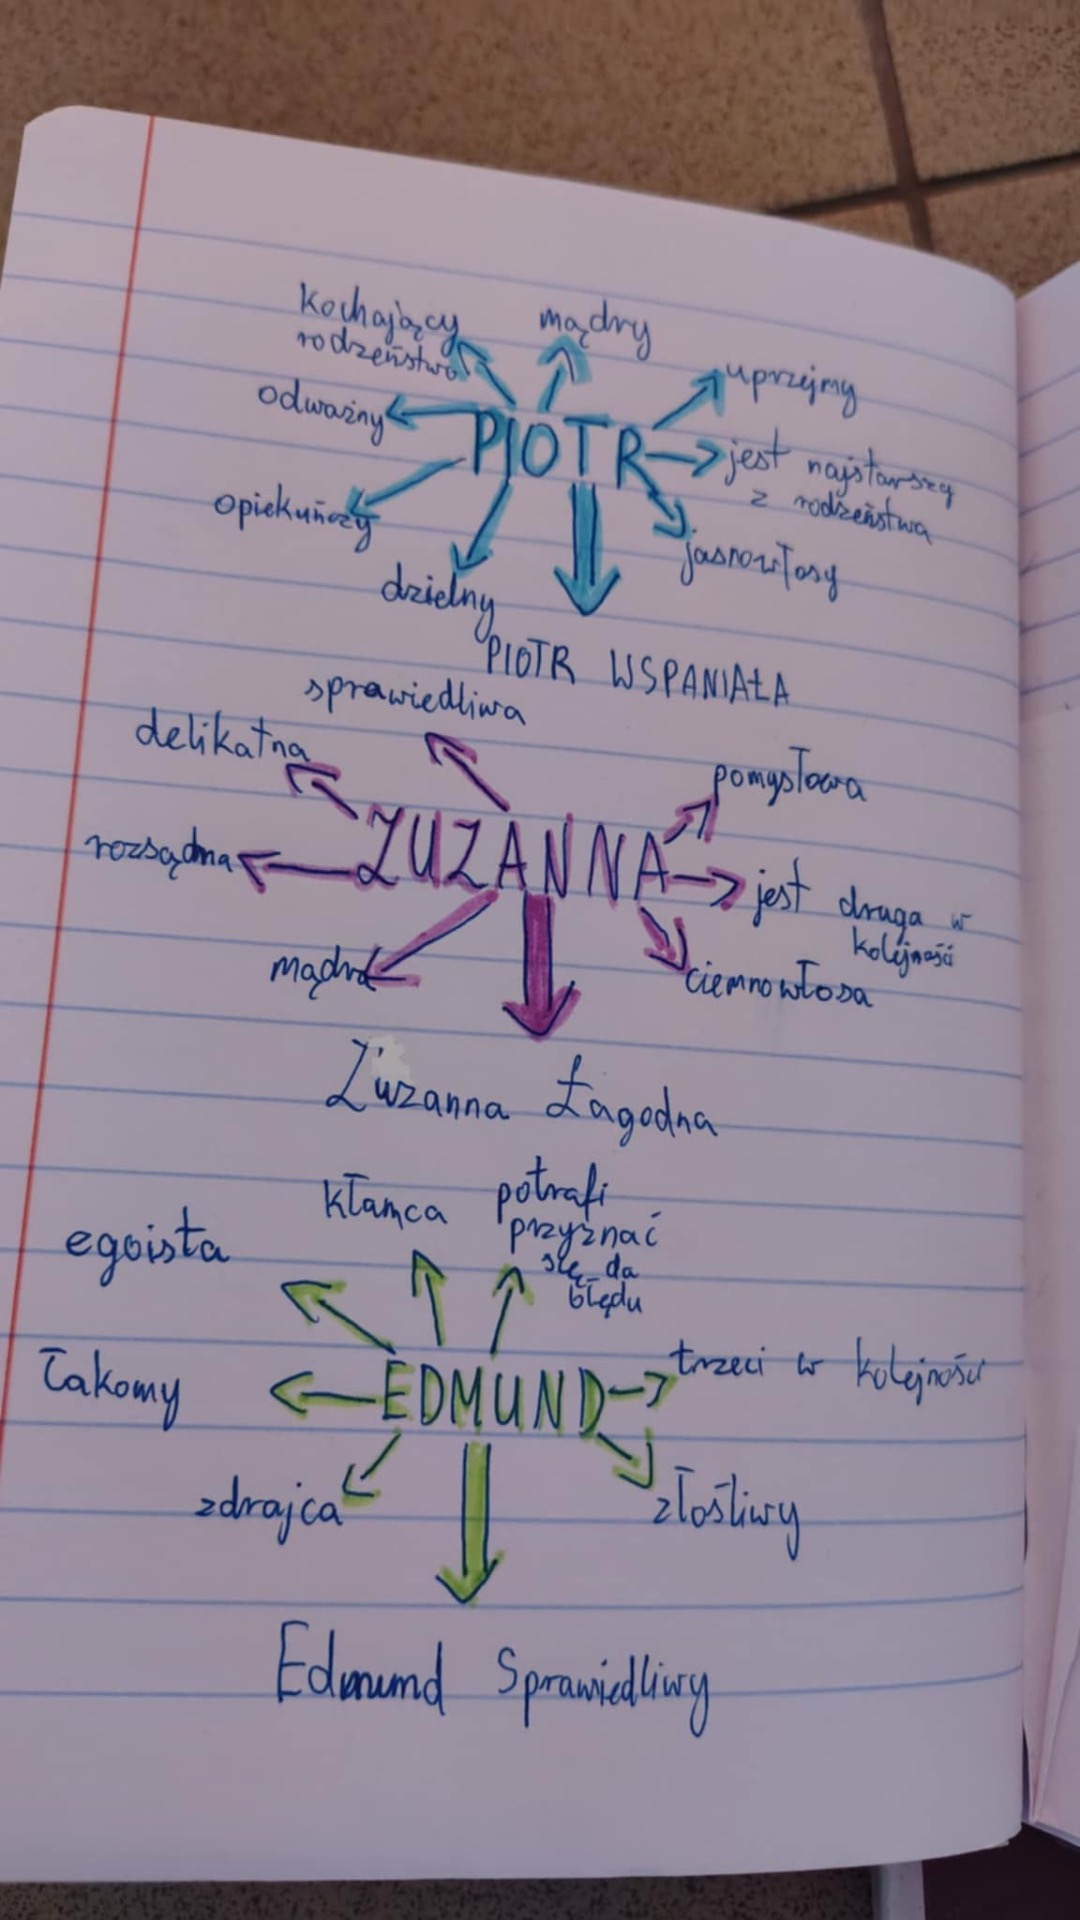 kochający
rodzeństwo
mądry
uprzejmy
odważny
PIOTR
jest najstarszy
z rodzeństwa
opiekuńczy
jasnowłosy
dzielny
PIOTR WSPANIAŁA
sprawiedliwa
delikatna
pomysłowa
ZUZANNA
rozsądna
jest druga w
kolejność
mądra
ciemnowłosa
Zuzanna Łagodna
kłamca
potrafi
przyznać
się da
błędu
egoista
trzeci w kolejności
łakomy
EDMUND
zdrajca
złośliwy
Edmund Sprawiedliwy